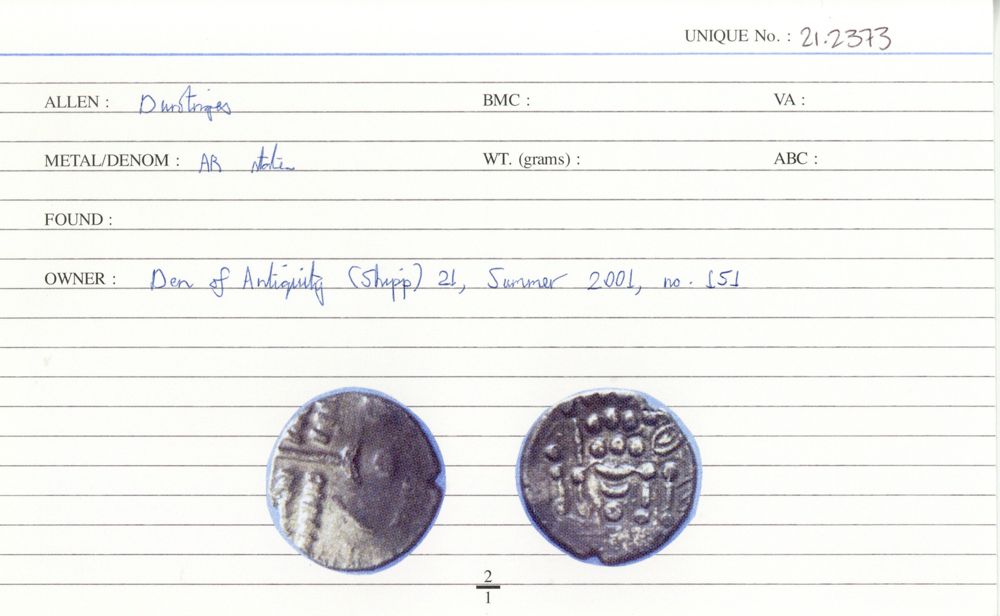 UNIQUE No. : 21.2373
ALLEN : Durotriges BMC : VA :
METAL/DENOM : AR stater WT. (grams) : ABC :
FOUND :
OWNER : Den of Antiquity (Shipp) 21, Summer 2001, no. 151
2
1